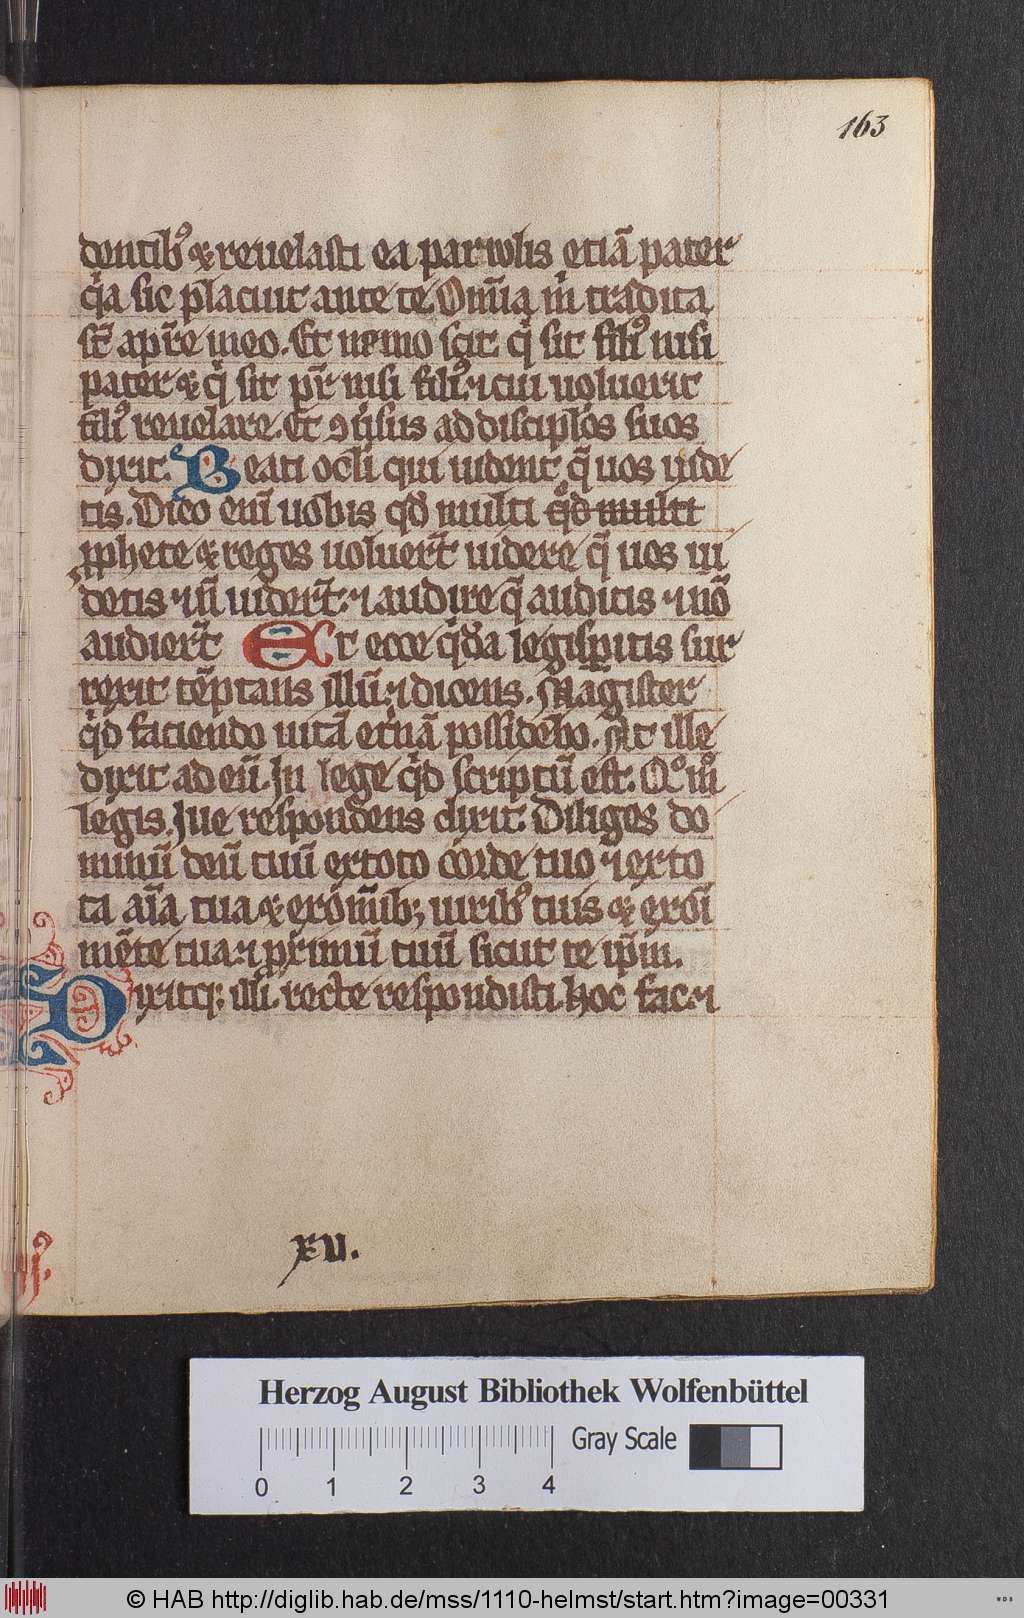 163
dentib⁹ & reuelasti ea paruolis etiā pater
q̓a sic placuit ante te. Om̄ia m̓ tradita
st̄ a p̄re meo. Et nemo scit q̓ sit fili⁹ nisi
pater & q̓ sit pr̄ nisi fili⁹ ⁊ cui uoluerit
fili⁹ reuelare. Et ꝯu̓sus ad discip̄los suos
dixit. Beati oc̄li qui uident q̄ uos uide
tis. Dico eni̅ uobis qd̓ multi qd̓ multi
ꝓphete & reges uoluer̄t uidere q̄ uos ui
detis ⁊ n̄ uider̄t. ⁊ audire q̄ auditis ⁊ nō
audier̄t Et ecce q̓da legisꝑitis sur
rexit tēptans illū. ⁊ dicens. Magister
q̓d faciendo uitā et̓nā possidebo. At ille
dixit ad eū. In lege q̓d scriptū est. Qͦ mͦ
legis. Ille respondens dixit. Diliges do
minū deū tuū ex toto corde tuo ⁊ ex to
ta aīa tua & ex om̄ib; uirib⁹ tuis & ex oī
mēte tua. ⁊ p̓ximū tuū sicut te ip̄m.
Dixitq; illi. recte respondisti. hoc fac. ⁊
xv.
Herzog August Bibliothek Wolfenbüttel
Gray Scale
0 1 2 3 4
© HAB http://diglib.hab.de/mss/1110-helmst/start.htm?image=00331